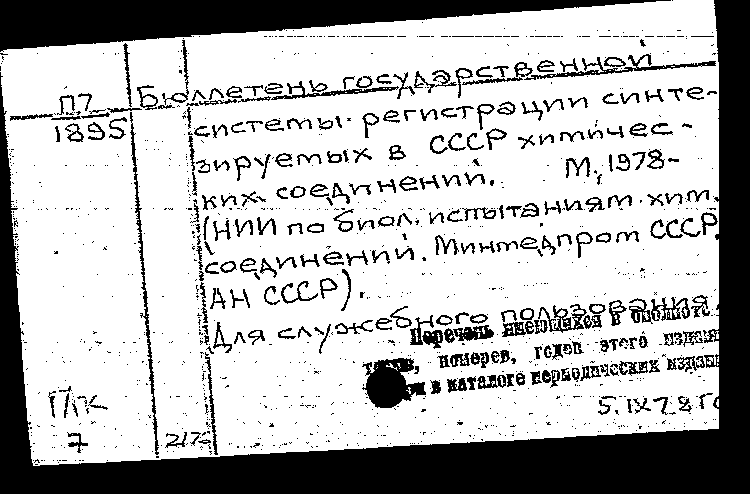 П7 Бюллетень государственной
1895 системы регистрации синте-
зируемых в СССР химичес-
ких соединений. М, 1978-
(НИИ по биол. испытаниям хим.
соединений. Минмедпром СССР.
АН СССР).
Для служебного пользования
Перечень имеющихся в библиоте
томов, номеров, годов этого издания
в каталоге периодических издан
5.IX 78 Го
7